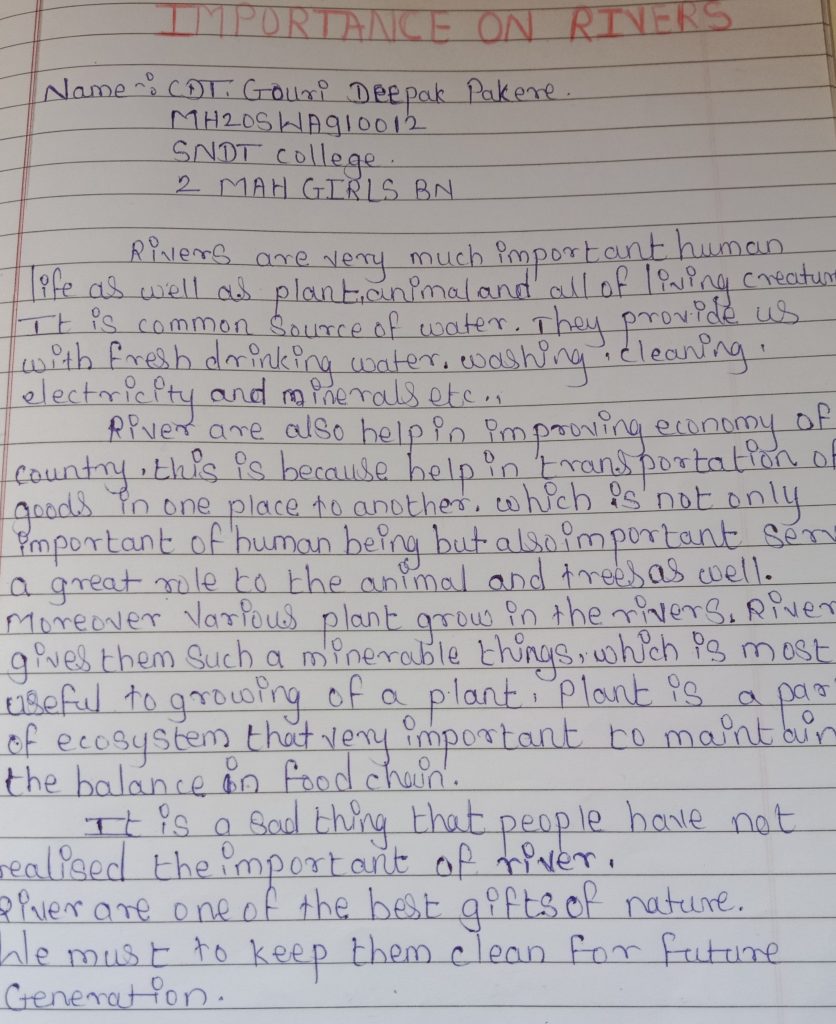 IMPORTANCE ON RIVERS
Name :- CDT. Gouri Deepak Pakere.
MH20SWA910012
SNDT college.
2 MAH GIRLS BN
Rivers are very much important human
life as well as plant, animal and all of living creatur
It is common source of water. They provide us
with fresh drinking water. washing, cleaning,
electricity and minerals etc..
River are also help in improving economy of
country, this is because help in transportation of
goods in one place to another. which is not only
important of human being but also important serv
a great role to the animal and trees as well.
Moreover Various plant grow in the rivers. River
gives them such a minerable things, which is most
useful to growing of a plant, plant is a par
of ecosystem that very important to maintain
the balance in food chain.
It is a sad thing that people have not
realised the important of river.
River are one of the best gifts of nature.
We must to keep them clean for future
Generation.